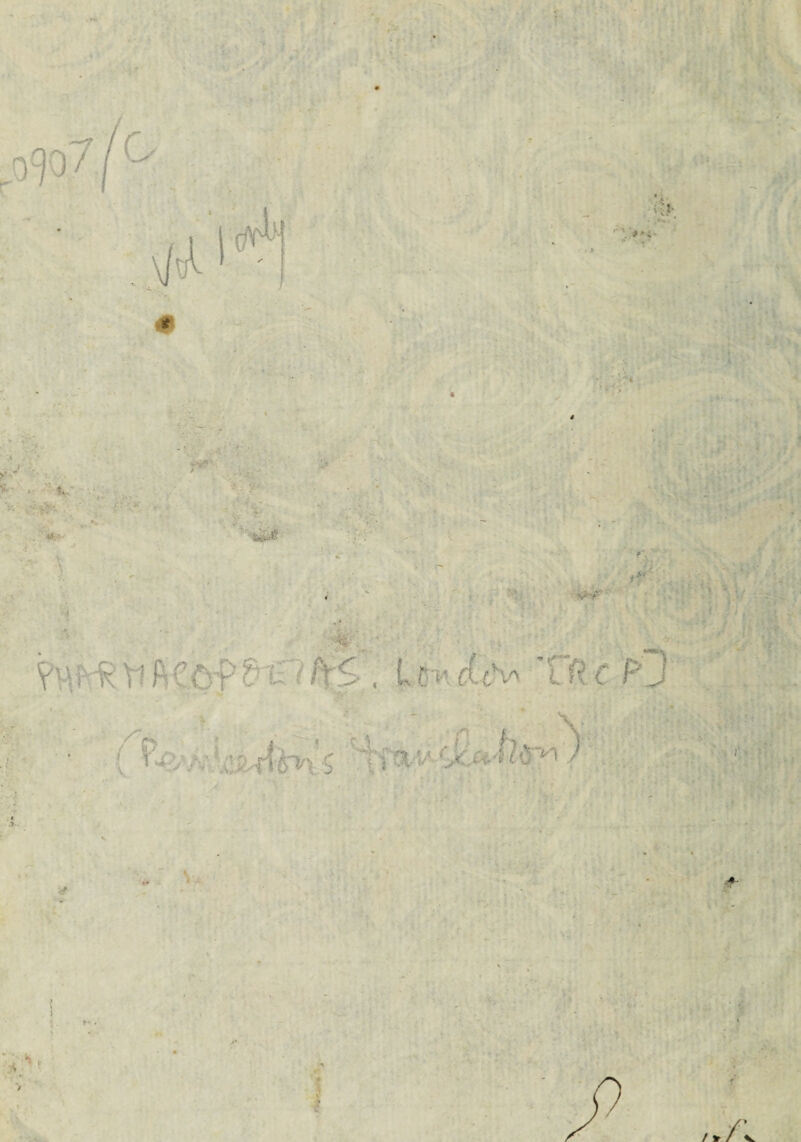 0907/C
Vol 1 only
PHARMACOPOEIAS. London [RCP]
(Pemberton's translation)